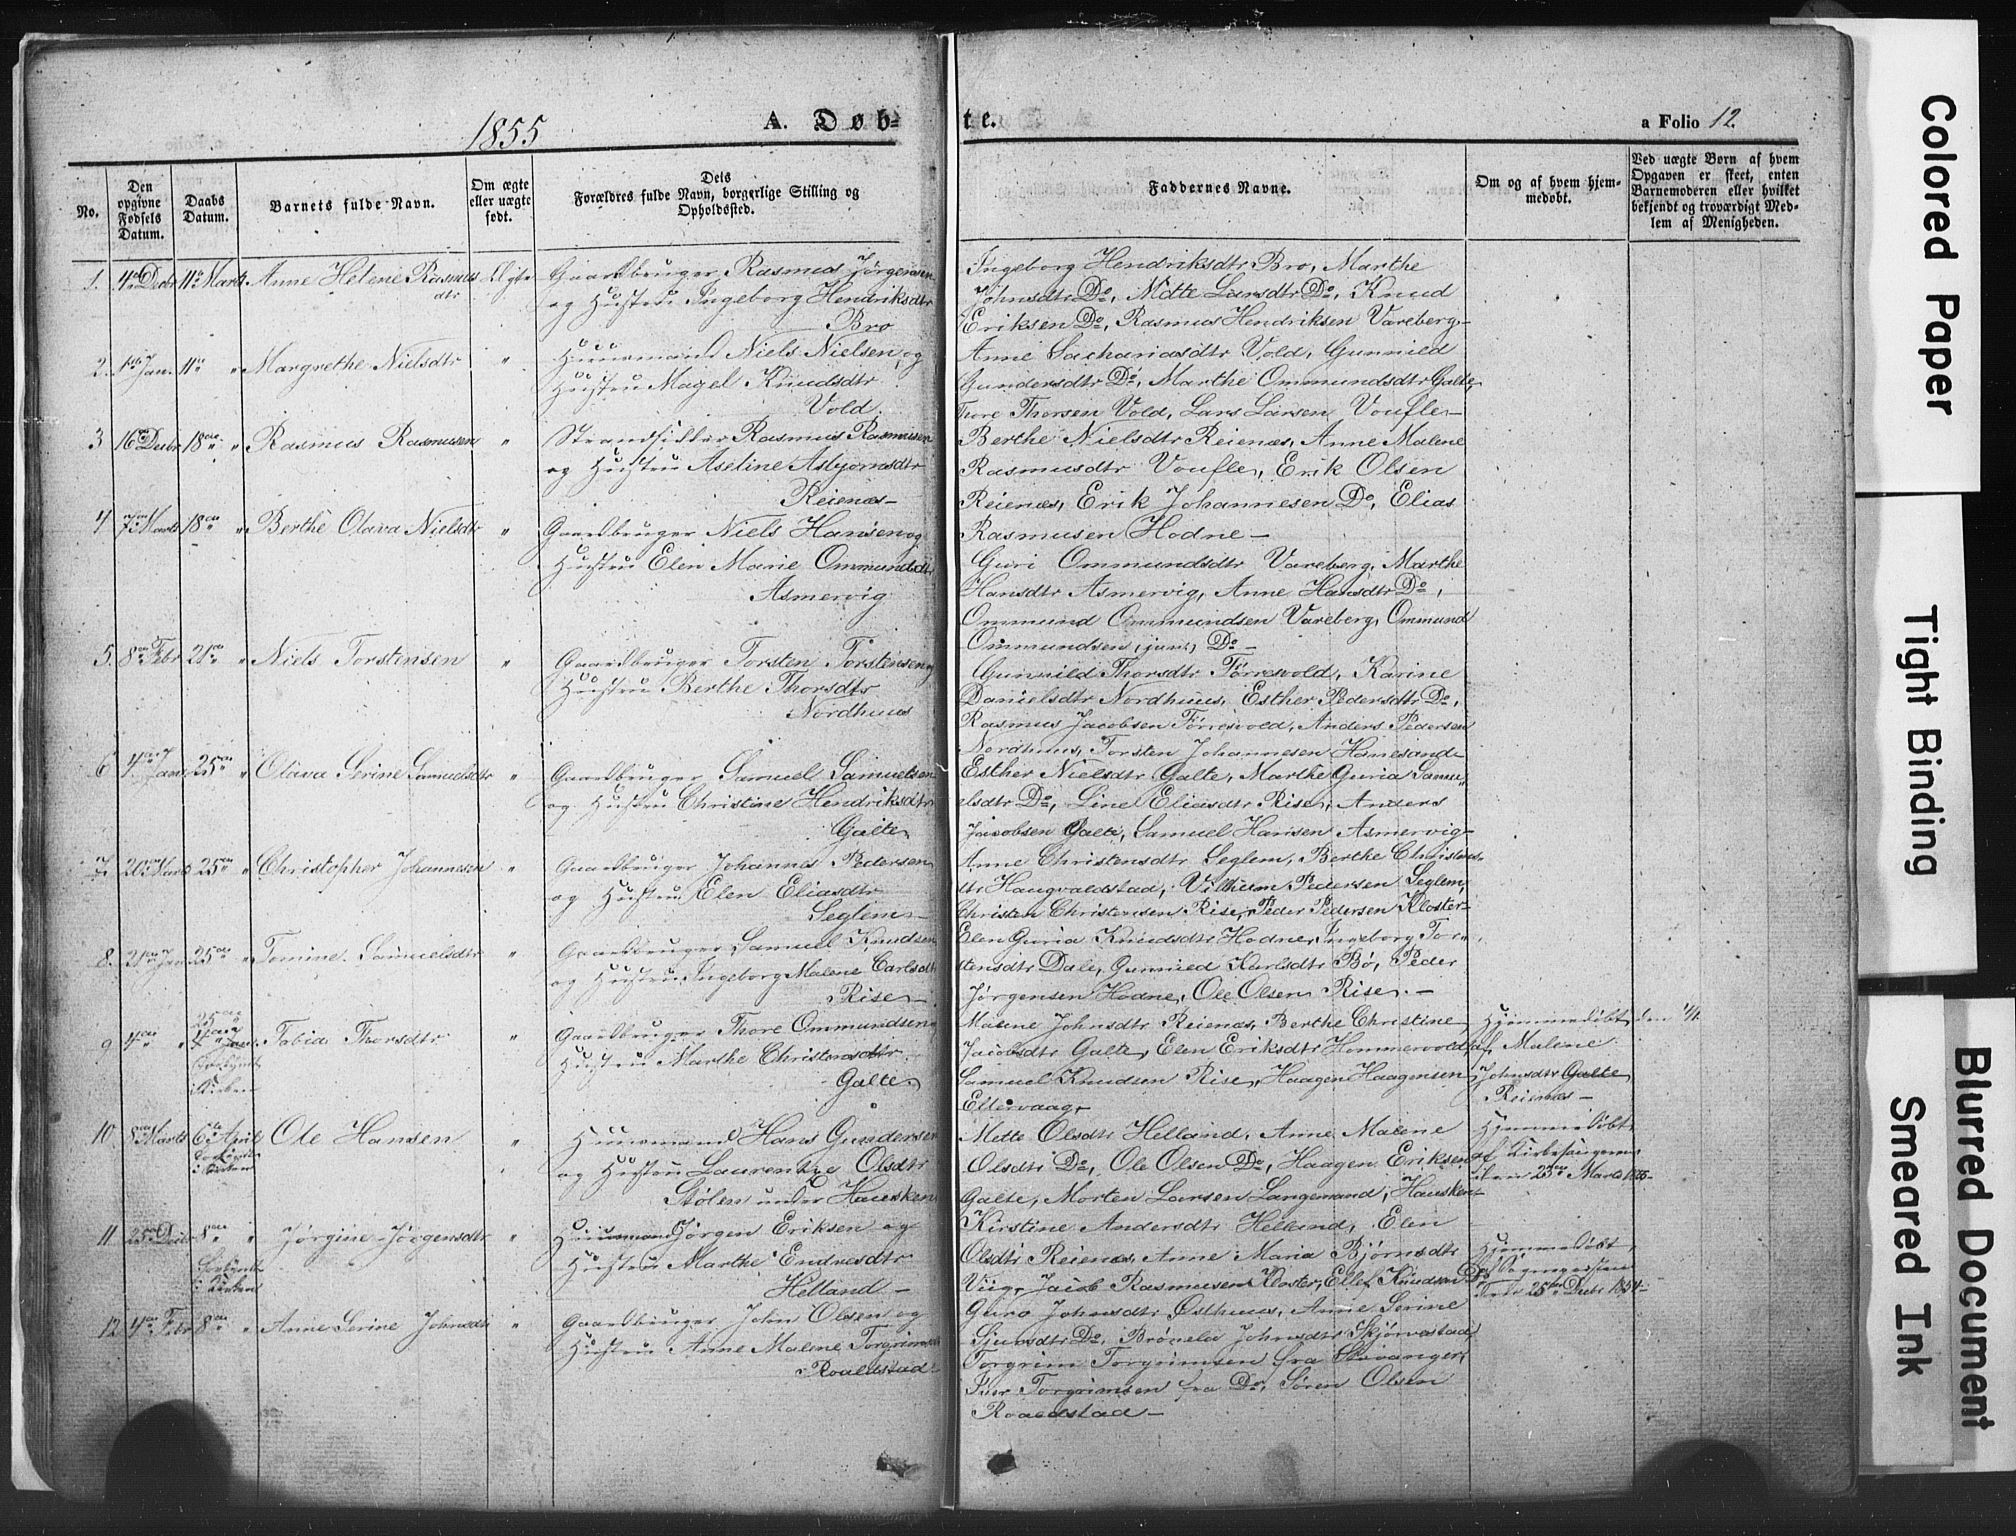 1855
A. Døb=
te.
a Folio 12.
No.
Den opgivne Fødsels Datum.
Daabs Datum.
Barnets fulde Navn.
Om ægte eller uægte født.
Dets Forældres fulde Navn, borgerlige Stilling og Opholdssted.
Faddernes Navne.
Om og af hvem hjemmedøbt.
Ved uægte Børn af hvem Opgaven er skeet, enten Barnemoderen eller hvilket bekjendt og troværdigt Medlem af Menigheden.
1. 4de Decbr 11te Marts Anne Helene Rasmusdtr Ægte Gaardbruger Rasmus Jørgensen
og Hustru Ingeborg Hendriksdtr
Bro
2. 1ste Jan. 11te " Margrethe Nielsdtr " Huusmand Niels Nielsen og
Hustru Magel Knudsdtr
Vold.
3 16de Decbr 18de " Rasmus Rasmusen " Strandsidder Rasmus Rasmusen
og Hustru Aseline Asbjørnsdtr
Reienæs-
4 7de Marts 18de " Berthe Olava Nielsdtr " Gaardbruger Niels Hansen og
Hustru Elen Marie Ommundsdtr
Asmervig
5. 8de Febr 21de " Niels Torstensen " Gaardbruger Torsten Torstensen og
Hustru Berthe Thorsdtr
Nordhuus
6 4de Jan. 25de " Olava Serine Samuelsdtr " Gaardbruger Samuel Samuelsen
og Hustru Christine Hendriksdtr
Galte
7. 20de Marts 25de " Christopher Johannesen " Gaardbruger Johannes Pedersen
og Hustru Elen Eliasdtr
Seglem-
8. 21de Jan. 25de " Tomine Samuelsdtr " Gaardbruger Samuel Knudsen
og Hustru Ingeborg Malene Carlsdtr
Rise-
9 4de " 25de Tobia Thorsdtr " Gaardbruger Thore Ommundsen
i Kirken Hustru Marthe Christensdtr
Galte
10. 8de Marts 6te April Ole Hansen " Huusmand Hans Gundersen
i Kirken og Hustru Laurentze Olsdtr
Stølen under Hausken
11. 25de Decbr 8de " Jørgine Jørgensdtr " Huusmand Jørgen Eriksen og
Hustru Marthe Endresdtr
i Kirken Helland-
12 4de Febr 8de " Anne Serine Johnsdtr " Gaardbruger John Olsen og
Hustru Anne Malene Torgrimsdtr
Roaldstad-
Ingeborg Hendriksdtr Bro, Marthe
Johnsdtr Do, Mette Larsdtr Do, Knud
Eriksen Do, Rasmus Hendriksen Vareberg-
Anne Sachariasdtr Vold, Gunnild
Gundersdtr Do, Marthe Ommundsdtr Galte,
Thore Thorsen Vold, Lars Larsen Voufle-
Berthe Nielsdtr Reienæs, Anne Malene
Rasmusdtr Voufle, Erik Olsen
Reienæs, Erik Johannesen Do, Elias
Rasmusen Hodne-
Guri Ommundsdtr Vareberg, Marthe
Hansdtr Asmervig, Anne Hansdtr Do,
Ommund Ommundsen Vareberg, Ommund
Ommundsen (jun:) Do-
Gunnild Thorsdtr Tørresvold, Karine
Danielsdtr Nordhuus, Esther Pedersdtr Do,
Rasmus Jacobsen Tørresvold, Anders Pedersen
Nordhuus, Torsten Johannesen Hanesand-
Esther Nielsdtr Galte, Marthe Guria Samu-
elsdtr Do, Line Eliasdtr Rise, Anders
Jacobsen Galte, Samuel Hansen Asmervig-
Anne Christensdtr Seglem, Berthe Christens-
dtr Haugvaldstad, Vilhelm Pedersen Seglem,
Christen Christensen Rise, Peder Pedersen Kloster-
Elen Guria Knudsdtr Hodne, Ingeborg Tor-
stensdtr Dale, Gunnild Karlsdtr Bø, Peder
Jørgensen Hodne, Ole Olsen Rise.-
Malene Johnsdtr Reienæs, Berthe Christine
Jacobsdtr Galte, Elen Eriksdtr Hommersvold,
Samuel Knudsen Rise, Haagen Haagensen
Ellervaag-
Mette Olsdtr Helland, Anne Malene
Olsdtr Do, Ole Olsen Do, Haagen Eriksen
Galte, Morten Larsen Langemand, Hausken-
Kirstine Andersdtr Helland, Elen
Olsdtr Reienæs, Anne Maria Bjørnsdtr
Viig, Jacob Rasmusen Kloster, Ellef Knudsen Do
Guro Johnsdtr Østhuus, Anne Serine
Sjursdtr Do, Brønela Johnsdtr Skjørvestad,
Torgrim Torgrimsen fra Stavanger,
Iver Torgrimsen fra Do, Søren Olsen
Roaldstad-
Hjemmedøbt den
af Malene
Johnsdtr Galte
Reienæs-
Hjemmedøbt
af Kirkesangeren
den 23de Marts 1855-
Hjemmedøbt
den 25de Decbr 1854-
Colored Paper
Tight Binding
Blurred Document
Smeared Ink